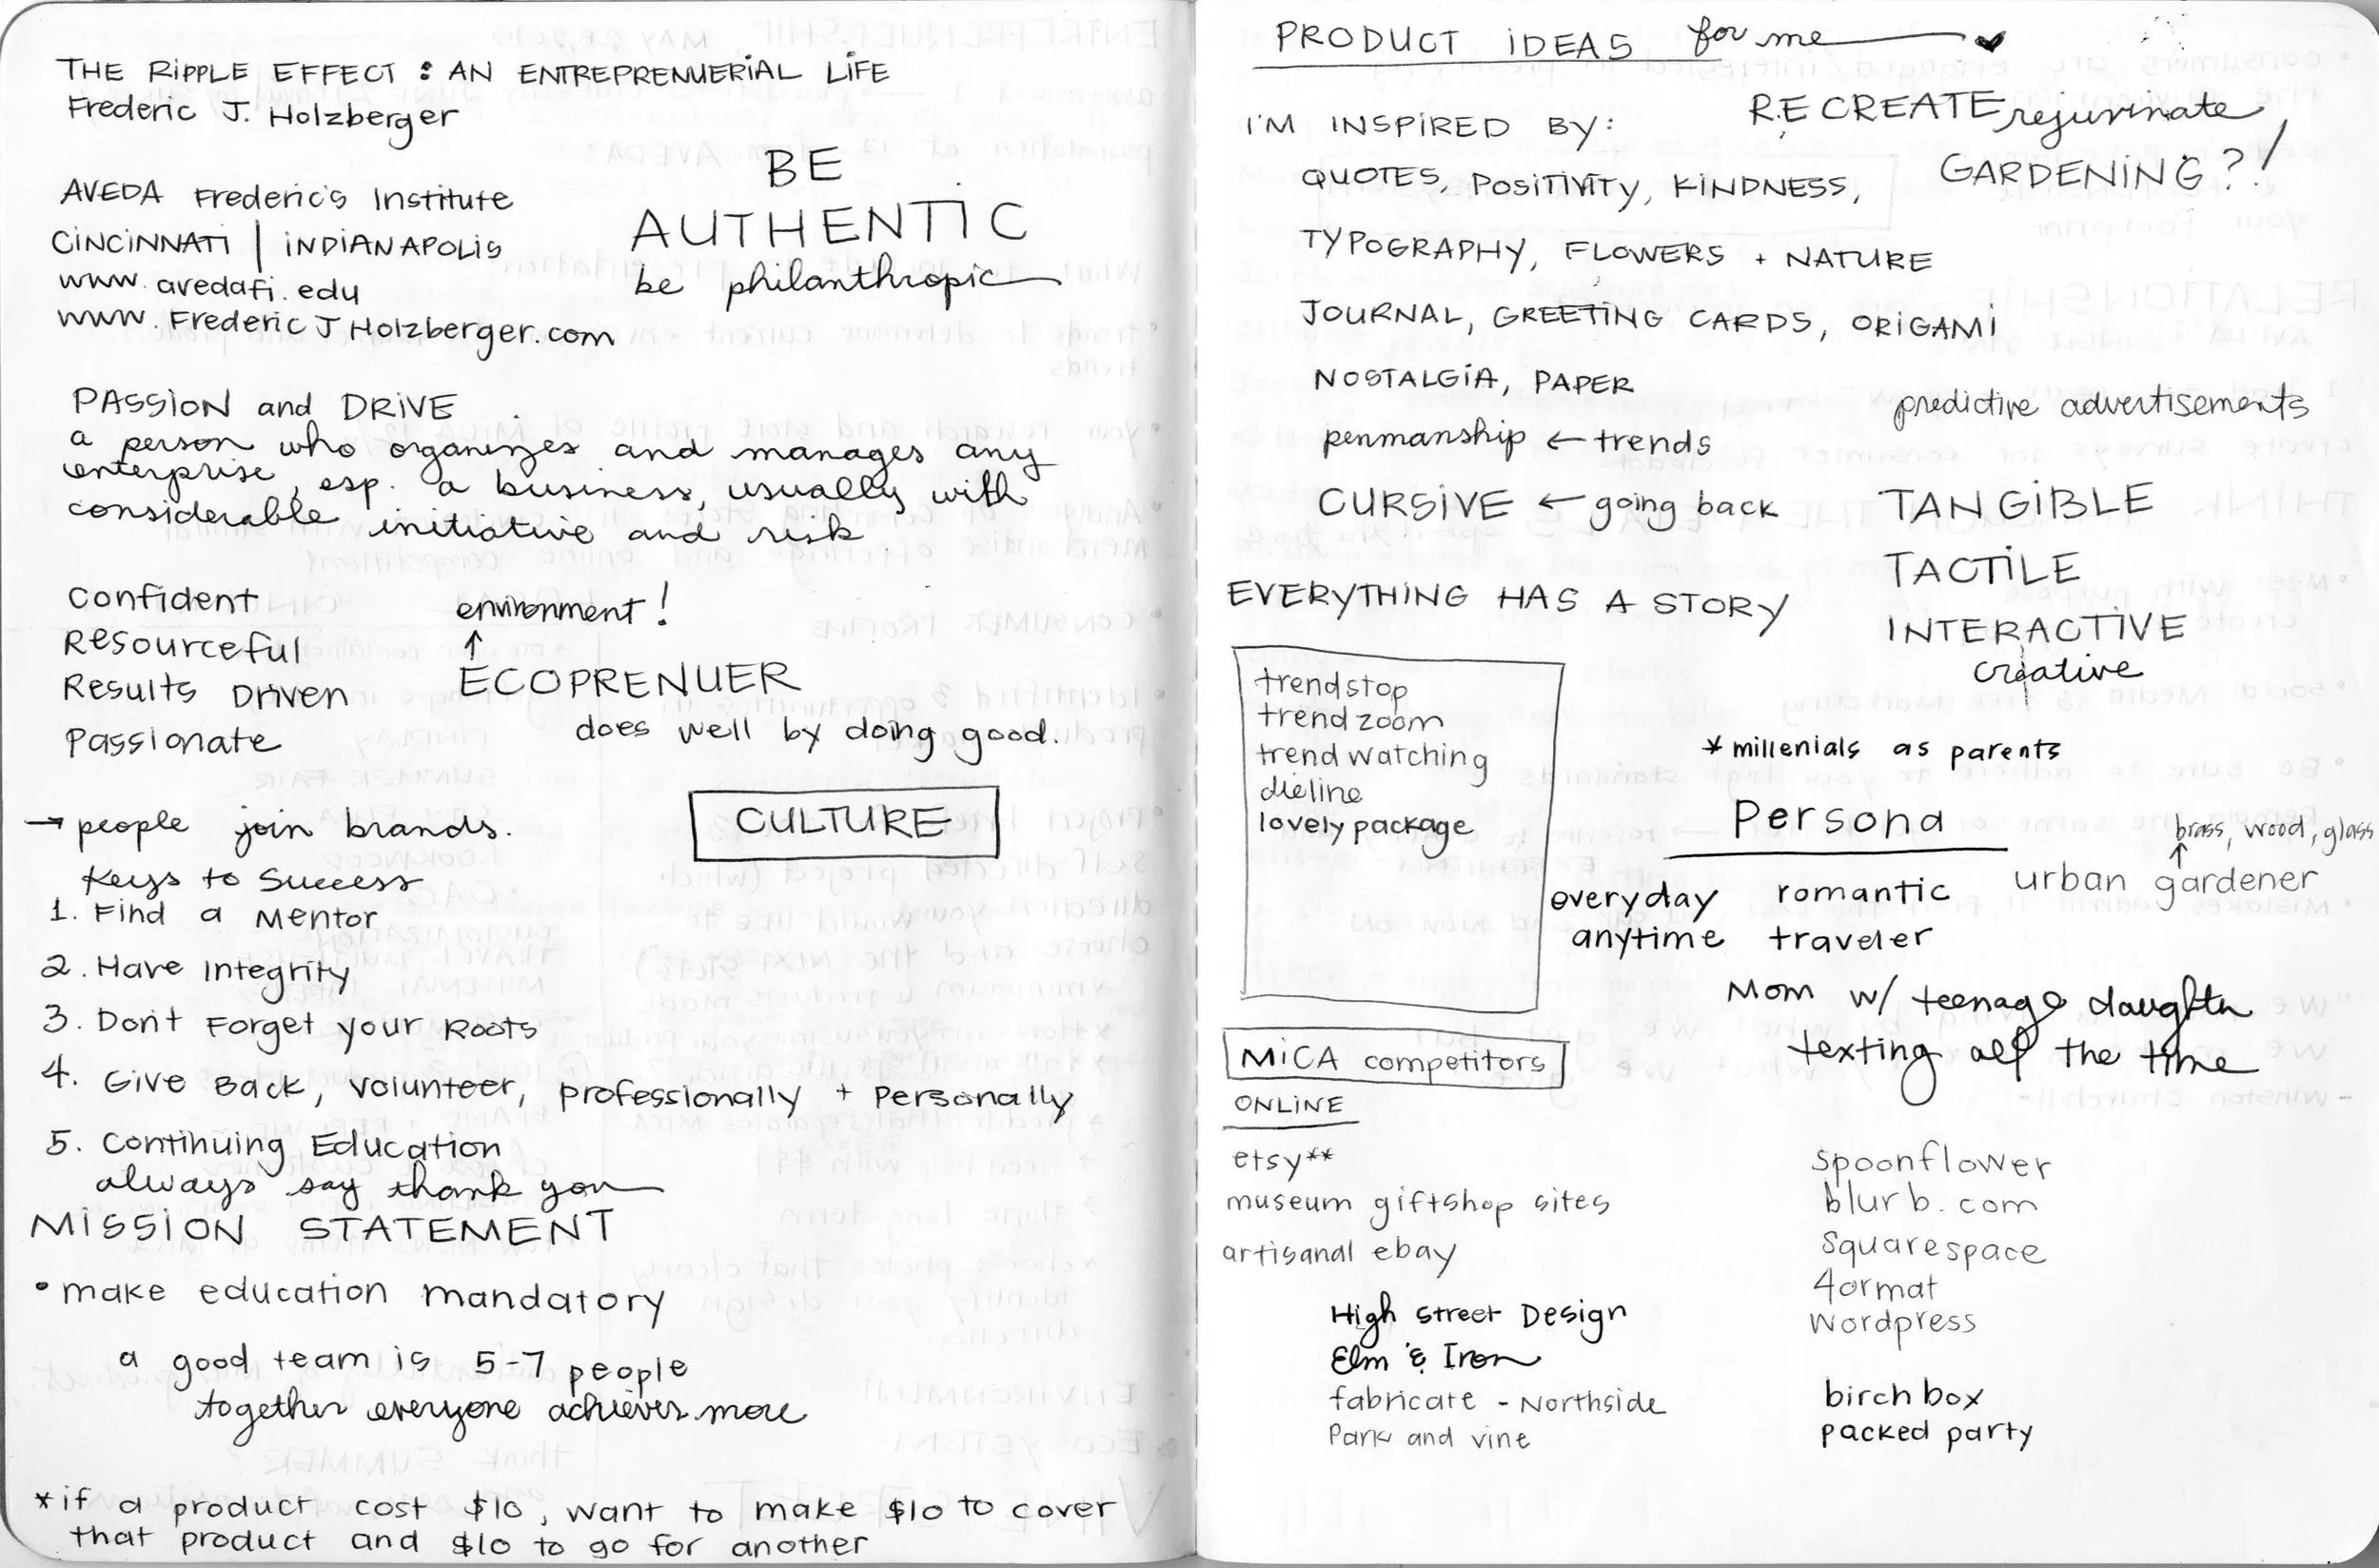 THE RIPPLE EFFECT : AN ENTREPRENUERIAL LIFE
Frederic J. Holzberger
BE
AUTHENTIC
be philanthropic
AVEDA Frederic's Institute
CINCINNATI | INDIANAPOLIS
www.avedafi.edu
www.FredericJHolzberger.com
PASSION and DRIVE
a person who organizes and manages any
enterprise, esp. a business, usually with
considerable initiative and risk.
Confident
Resourceful
Results Driven
Passionate
environment!
↑
ECOPRENUER
does well by doing good.
→ people join brands.
CULTURE
Keys to Success
1. Find a Mentor
2. Have Integrity
3. Don't Forget your Roots
4. Give Back, volunteer, professionally + Personally
5. Continuing Education
always say thank you
MISSION STATEMENT
• make education mandatory
a good team is 5-7 people
together everyone achieves more
*if a product cost $10, want to make $10 to cover
that product and $10 to go for another
PRODUCT IDEAS for me ♥
RECREATE rejuvinate
GARDENING?!
I'M INSPIRED BY:
QUOTES, POSITIVITY, KINDNESS,
TYPOGRAPHY, FLOWERS + NATURE
JOURNAL, GREETING CARDS, ORIGAMI
NOSTALGIA, PAPER
penmanship ← trends
CURSIVE ← going back
predictive advertisements
TANGIBLE
TACTILE
INTERACTIVE
creative
EVERYTHING HAS A STORY
trendstop
trendzoom
trendwatching
dieline
lovely package
*millenials as parents
Persona
brass, wood, glass
↑
urban gardener
everyday romantic
anytime traveler
Mom w/ teenage daughter
texting all the time
MICA competitors
ONLINE
etsy**
museum giftshop sites
artisanal ebay
High Street Design
Elm & Iron
fabricate - Northside
Park and vine
spoonflower
blurb.com
squarespace
4ormat
wordpress
birchbox
packed party